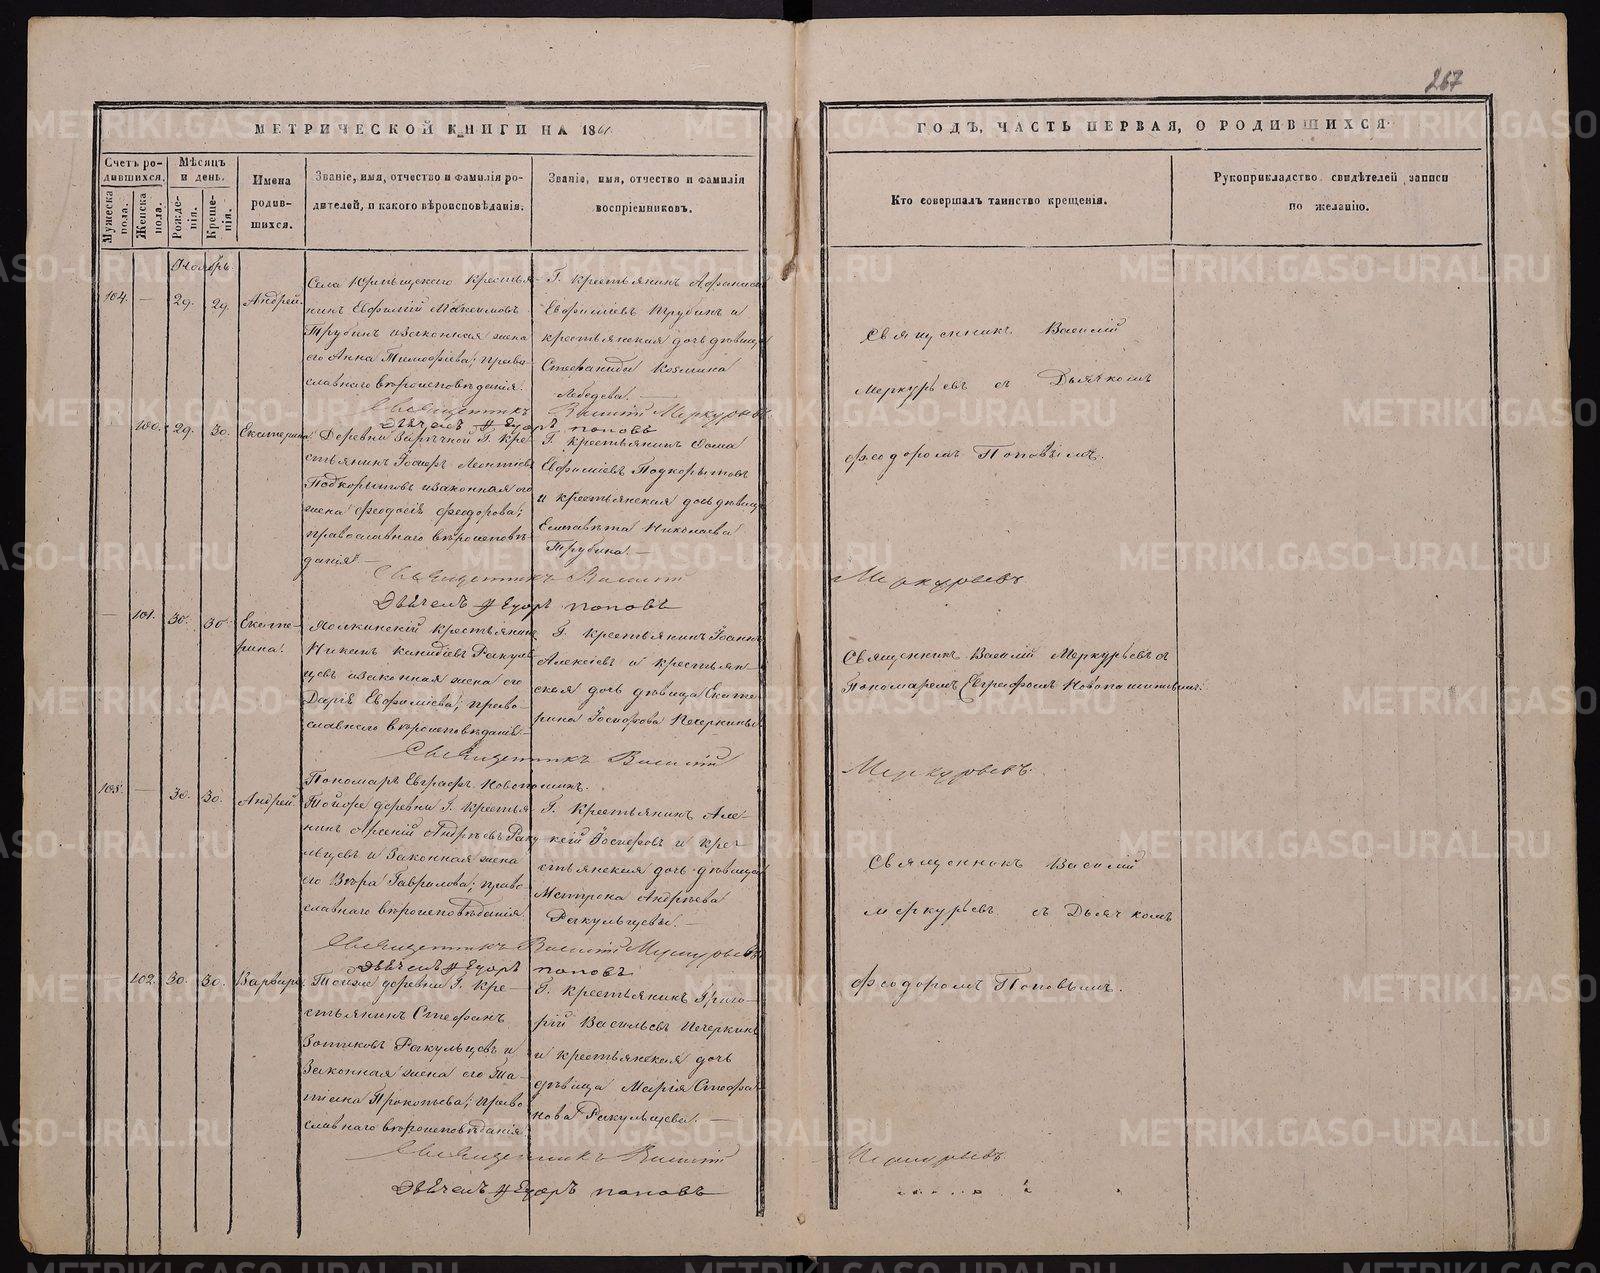 267
МЕТРИЧЕСКОЙ КНИГИ НА 1861.
ГОДЪ, ЧАСТЬ ПЕРВАЯ, О РОДИВШИХСЯ.
Счетъ ро-
дившихся.
Мужеска
пола.
Женска
пола.
Мѣсяцъ
и день.
Рожде-
нія.
Креще-
нія.
Имена
родив-
шихся.
Званіе, имя, отчество и фамилія ро-
дителей, и какого вѣроисповѣданія.
Званіе, имя, отчество и фамилія
воспріемниковъ.
Кто совершалъ таинство крещенія.
Рукоприкладство свидѣтелей записи
по желанію.
Ноябрь.
104. — 29. 29. Андрей.
Села крестья-
нинъ Евфимій Максимовъ
Трубинъ и законная жена
его Анна Тимофѣева; право-
славнаго вѣроисповѣданія.
Г. крестьянинъ Афанасій
Евфиміевъ Трубинъ и
крестьянская дочь дѣвица
Стефанида Козмина
Лебедева. —
Священникъ Василій
Меркурьевъ съ Дьячкомъ
Феодоромъ Поповымъ.
Священникъ Василій Меркурьевъ
Дьячекъ Ѳедоръ Поповъ
100. 29. 30. Екатерина.
Деревни Зарѣчной Г. кре-
стьянинъ Іосифъ Леонтіевъ
Подкорытовъ и законная его
жена Феодосія Феодорова;
православнаго вѣроисповѣ-
данія. —
Г. крестьянинъ Фома
Евфиміевъ Подкорытовъ
и крестьянская дочь дѣвица
Елисавета Николаева
Трубина. —
Священникъ Василій Меркурьевъ
Дьячекъ Ѳедоръ Поповъ
— 101. 30. 30. Екате-
рина.
крестьянинъ
Никита Ракуль-
цевъ и законная жена его
Дарія Евфиміева; право-
славнаго вѣроисповѣданія. —
Г. крестьянинъ Іоаннъ
Алексіевъ и крестьян-
ская дочь дѣвица Екате-
рина Іосифова Печеркины
Священникъ Василій Меркурьевъ съ
Пономаремъ Евграфомъ
Священникъ Василій Меркурьевъ.
Пономарь Евграфъ
105. — 30. 30. Андрей.
Тойже деревни Г. крестья-
нинъ Арсеній Андреевъ Раку-
льцевъ и законная жена
его Вѣра Гаврилова; право-
славнаго вѣроисповѣданія.
Г. крестьянинъ Але-
ксій Іосифовъ и кре-
стьянская дочь дѣвица
Матрона Андреева
Ракульцевы. —
Священникъ Василій
Меркурьевъ съ Дьячкомъ
Феодоромъ Поповымъ.
Священникъ Василій Меркурьевъ
Дьячекъ Ѳедоръ Поповъ
— 102. 30. 30. Варвара.
Тойже деревни Г. кре-
стьянинъ Стефанъ
Зотиковъ Ракульцевъ и
законная жена его Та-
тіана Прокопьева; право-
славнаго вѣроисповѣданія.
Г. крестьянинъ Григо-
рій Васильевъ Печеркинъ
и крестьянская дочь
дѣвица Марія Стефа-
нова Ракульцева. —
Священникъ Василій Меркурьевъ
Дьячекъ Ѳедоръ Поповъ
METRIKI.GASO-URAL.RU